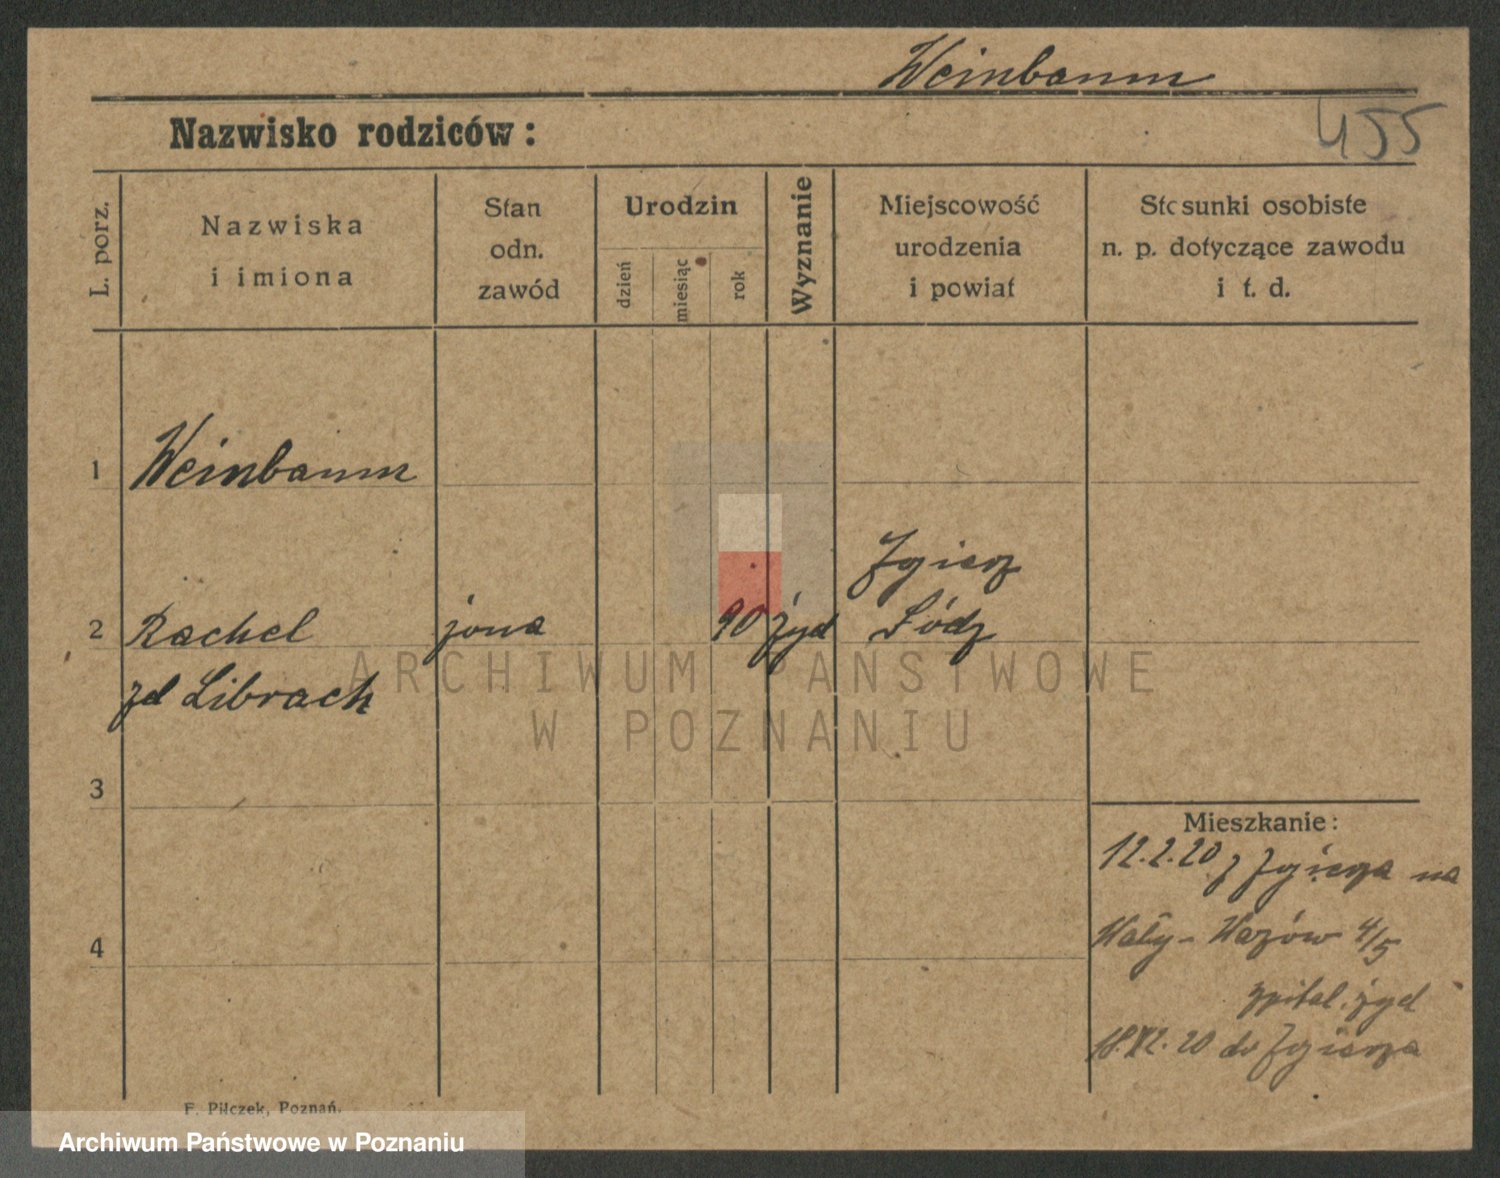 Weinbaum
455
Nazwisko rodziców:
L. porz.
Nazwiska
i imiona
Stan
odn.
zawód
Urodzin
dzień
miesiąc
rok
Wyznanie
Miejscowość
urodzenia
i powiat
Stosunki osobiste
n. p. dotyczące zawodu
i t. d.
1
Weinbaum
2
Rachel
zd Librach
żona
90
żyd
Zgierz
Łódz
3
4
Mieszkanie:
12.2.20 z Zgierza na
Wały-Wazów 4/5
szpital. żyd
18.XI.20 do Zgierza
F. Pilczek, Poznań.
ARCHIWUM PAŃSTWOWE
W POZNANIU
Archiwum Państwowe w Poznaniu